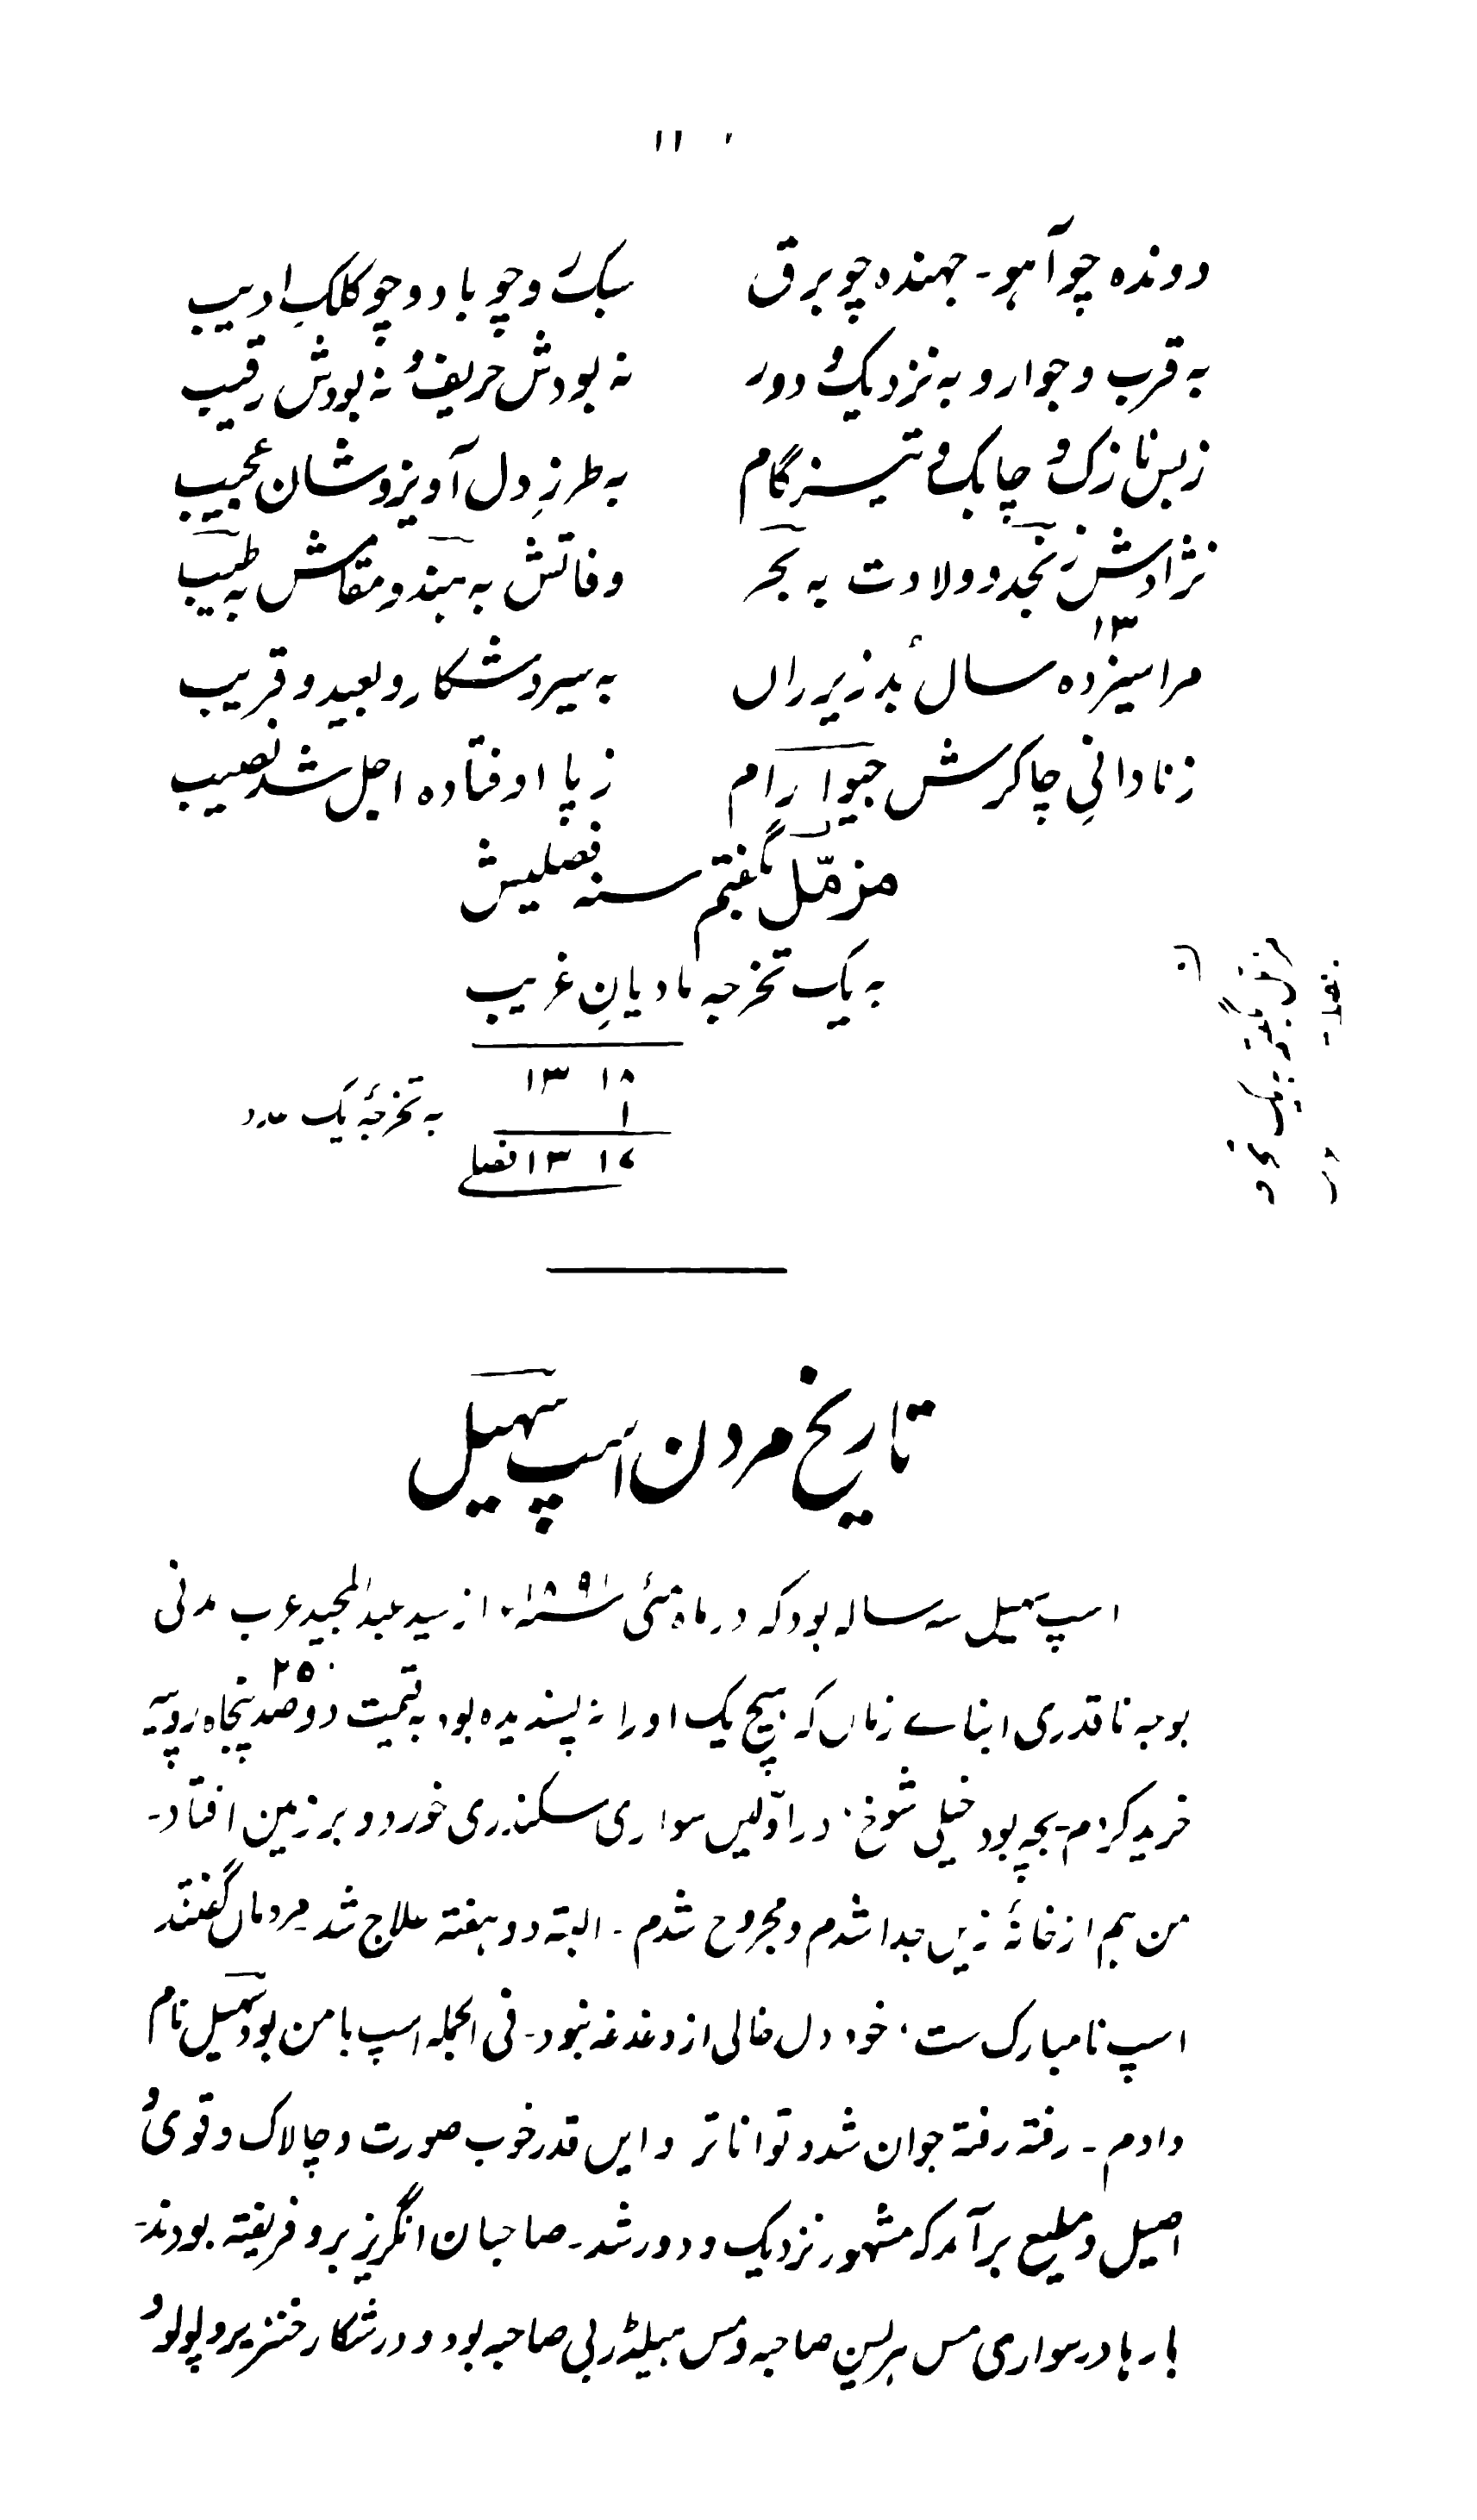 ۱۱
دونده چو آہو۔ جہندہ چو برق سبک و چو باد و چو کلکِ ادیب
بہ قرب و جوار و بہ نزدیک و دور نہ بودش حریف و نہ بودش رقیب
زبس نازک و چابک و تیز گام بہ طرزِ دل آویز و شان عجیب
نژادش ز نجد و ولادت بہ بحر وفاتش بہ ہند و مقامش بہ طیب
۱۳
مرا سیزدہ سال بُد زیر راں بہ سیر و شکار و بعید و قریب
ز نادانیِ چاکرش جیوا رام ز پا اوفتاده اجل شد نصیب
مزمّل بگفتم سنہ فصلیش
بہ یک تخرجہ مادیانِ غریب
۱۳۱۸
۱
بہ تخرجۂ یک عدد
۱۳۱۷ فصلی
تاریخ مردن اسپ سہیل
اسپ سہیل سہ سالہ بود کہ در ماہ مئی ۱۸۹ء از سید عبدالمجید عرب مدنی
بوجہ ناقدری ابناے زماں کہ ہیچ یک او را نہ پسندیدہ بود بہ قیمت دو صد پنجاہ روپیہ ۲۵۰
خرید کردم۔ بچہ بود خیلی شوخ، در اوّلیں سواری سکندری خورد و بر زمین افتاد۔
من ہم از خانۂ زیں جدا شدم و مجروح شدم۔ البتہ دو ہفتہ علاج شد۔ مردماں گفتند
اسپ نامبارک ست، خود دل خالی از دغدغہ نبود۔ فی الجملہ اسپ با من بود سہیل نام
دادم۔ رفتہ رفتہ جوان شد و تواناتر و ایں قدر خوب صورت و چالاک و قوی و
اصیل و مطیع برآمد کہ مشہور نزدیک و دور شد۔ صاحبان انگریز برو فریفتہ بودند۔
بارہا در سواری مس ہرلسین صاحبہ و مس ہیلڈربی صاحبہ بود و در شکار خنزیر و پولو و